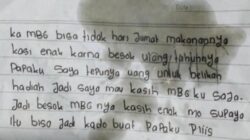 ka MBG bisa tidak hari Jumat makanannya
kasi enak karna besok ulang tahunnya
Papaku saya tepunya uang untuk belikan
hadiah jadi saya mau kasih MBG ku saja.
Jadi besok MBG nya kasih enak mo supaya
itu bisa jadi kado buat Papaku Pliis